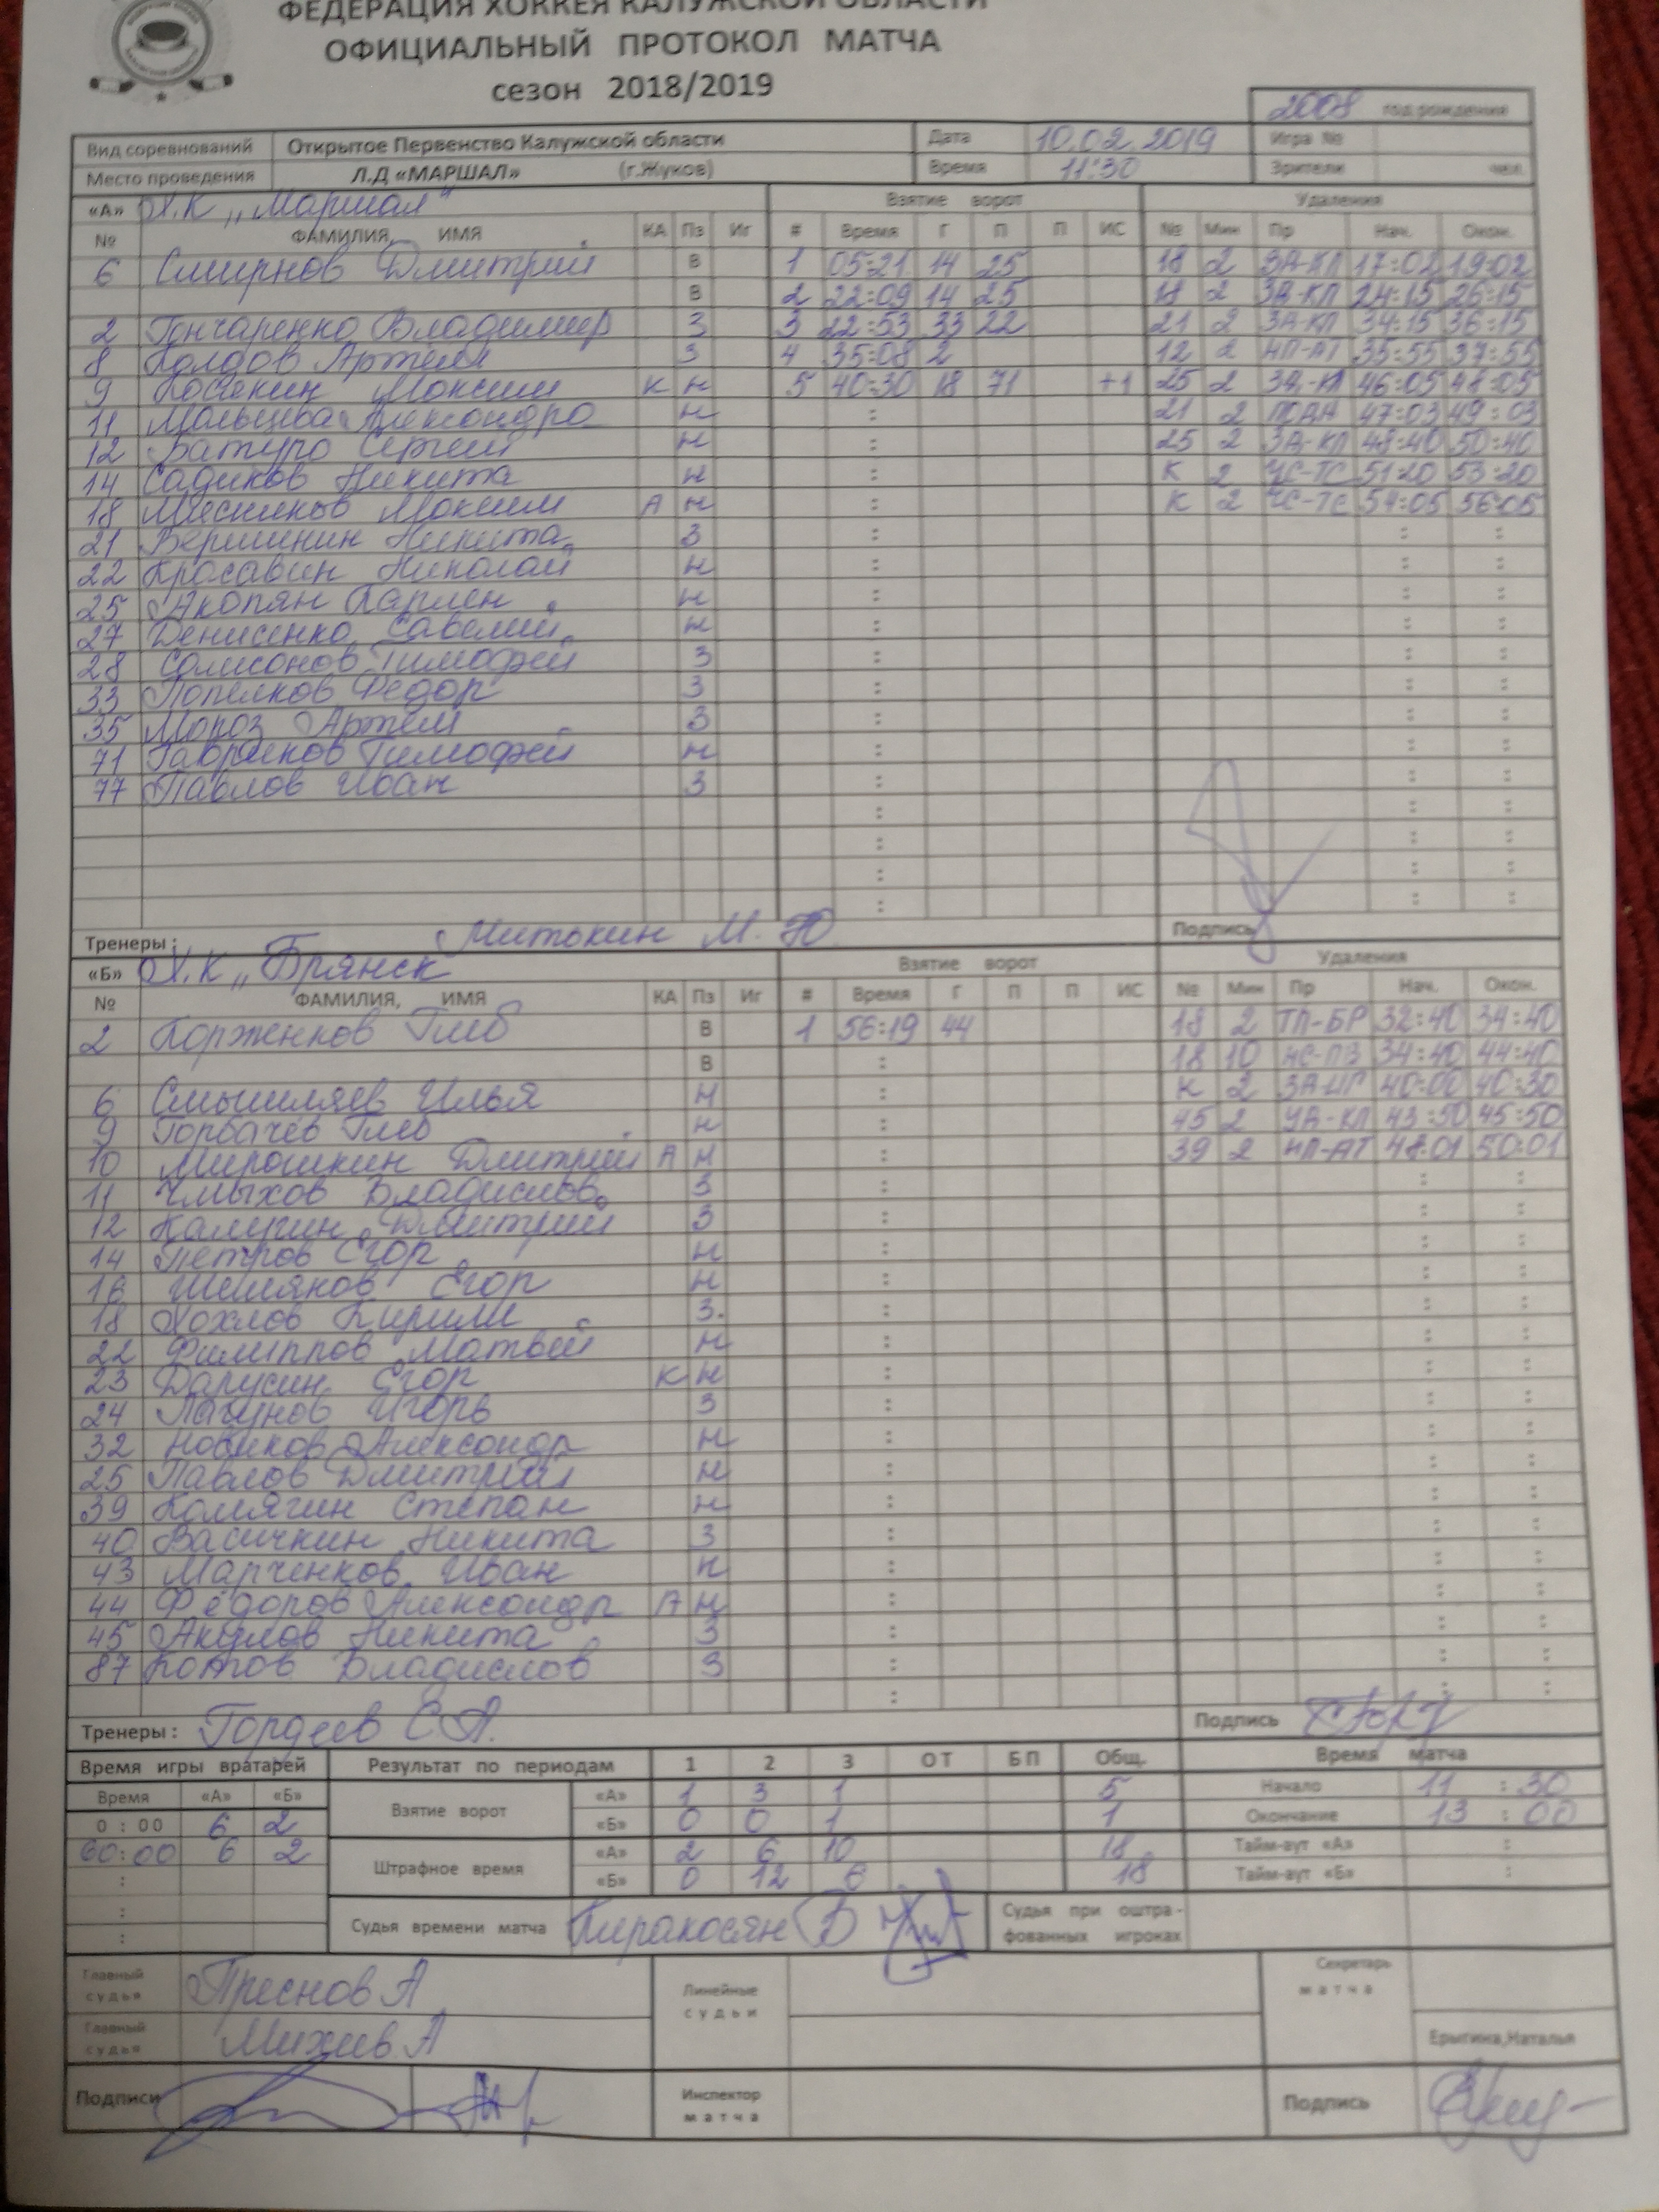 ФЕДЕРАЦИЯ ХОККЕЯ КАЛУЖСКОЙ ОБЛАСТИ
ОФИЦИАЛЬНЫЙ ПРОТОКОЛ МАТЧА
сезон 2018/2019
2008 год рождения
Вид соревнований Открытое Первенство Калужской области Дата 10.02.2019 Игра №
Место проведения Л.Д «МАРШАЛ» (г.Жуков) Время 11:30 Зрители чел.
«А» Х.К „Маршал" Взятие ворот Удаления
№ ФАМИЛИЯ, ИМЯ КА Пз Иг # Время Г П П ИС № Мин Пр Нач. Окон.
6 Смирнов Дмитрий В 1 05:21 14 25 18 2 ЗА-КЛ 17:02 19:02
В 2 22:09 14 25 18 2 ЗА-КЛ 24:15 26:15
2 Гончаренко Владимир З 3 22:53 33 22 21 2 ЗА-КЛ 34:15 36:15
8 Колдов Артём З 4 35:08 2 12 2 НП-АТ 35:55 37:55
9 Косякин Максим К Н 5 40:30 18 71 +1 25 2 ЗА-КЛ 46:05 48:05
11 Мальцева Александра Н : 21 2 ПОДН 47:03 49:03
12 Батуро Сергей Н : 25 2 ЗА-КЛ 48:40 50:40
14 Садиков Никита Н : К 2 ЧС-ТС 51:20 53:20
18 Мясников Максим А Н : К 2 ЧС-ТС 54:05 56:05
21 Вершинин Никита З : : :
22 Красавин Николай Н : : :
25 Акопян Карлен Н : : :
27 Денисенко Савелий Н : : :
28 Самсонов Тимофей З : : :
33 Попелков Федор З : : :
35 Мороз Артём З : : :
71 Гавриков Тимофей Н : : :
77 Павлов Иван З : : :
: : :
: : :
: : :
: : :
Тренеры : Митюкин М. Ю. Подпись
«Б» Х.К „Брянск Взятие ворот Удаления
№ ФАМИЛИЯ, ИМЯ КА Пз Иг # Время Г П П ИС № Мин Пр Нач. Окон.
2 Корженков Глеб В 1 56:19 44 18 2 ТП-БР 32:40 34:40
В : 18 10 НС-ПЗ 34:40 44:40
6 Смышляев Илья Н : К 2 ЗА-ИГ 40:00 40:30
9 Горбачев Глеб Н : 45 2 УА-КЛ 43:50 45:50
10 Мирошкин Дмитрий А Н : 39 2 НП-АТ 48:01 50:01
11 Чмыхов Владислав З : : :
12 Калугин Дмитрий З : : :
14 Петров Егор Н : : :
16 Шемяков Егор Н : : :
18 Хохлов Кирилл З. : : :
22 Филиппов Матвей Н : : :
23 Дарусин Егор К Н : : :
24 Лагунов Игорь З : : :
32 Новиков Александр Н : : :
25 Павлов Дмитрий Н : : :
39 Комягин Степан Н : : :
40 Васичкин Никита З : : :
43 Марченков Иван Н : : :
44 Фёдоров Александр А Н : : :
45 Акулов Никита З : : :
87 Владислав З : : :
: : :
Тренеры : Гордеев С.А. Подпись
Время игры вратарей Результат по периодам 1 2 3 ОТ БП Общ. Время матча
Время «А» «Б» Взятие ворот «А» 1 3 1 5 Начало 11 : 30
0 : 00 6 2 «Б» 0 0 1 1 Окончание 13 : 00
60:00 6 2 Штрафное время «А» 2 6 10 18 Тайм-аут «А» :
: «Б» 0 12 6 18 Тайм-аут «Б» :
: Судья времени матча Киракосян В Судья при оштра-
: фованных игроках
Главный судья Преснов А Линейные судьи Секретарь матча
Главный судья Михеев А Ерыгина,Наталья
Подписи Инспектор матча Подпись